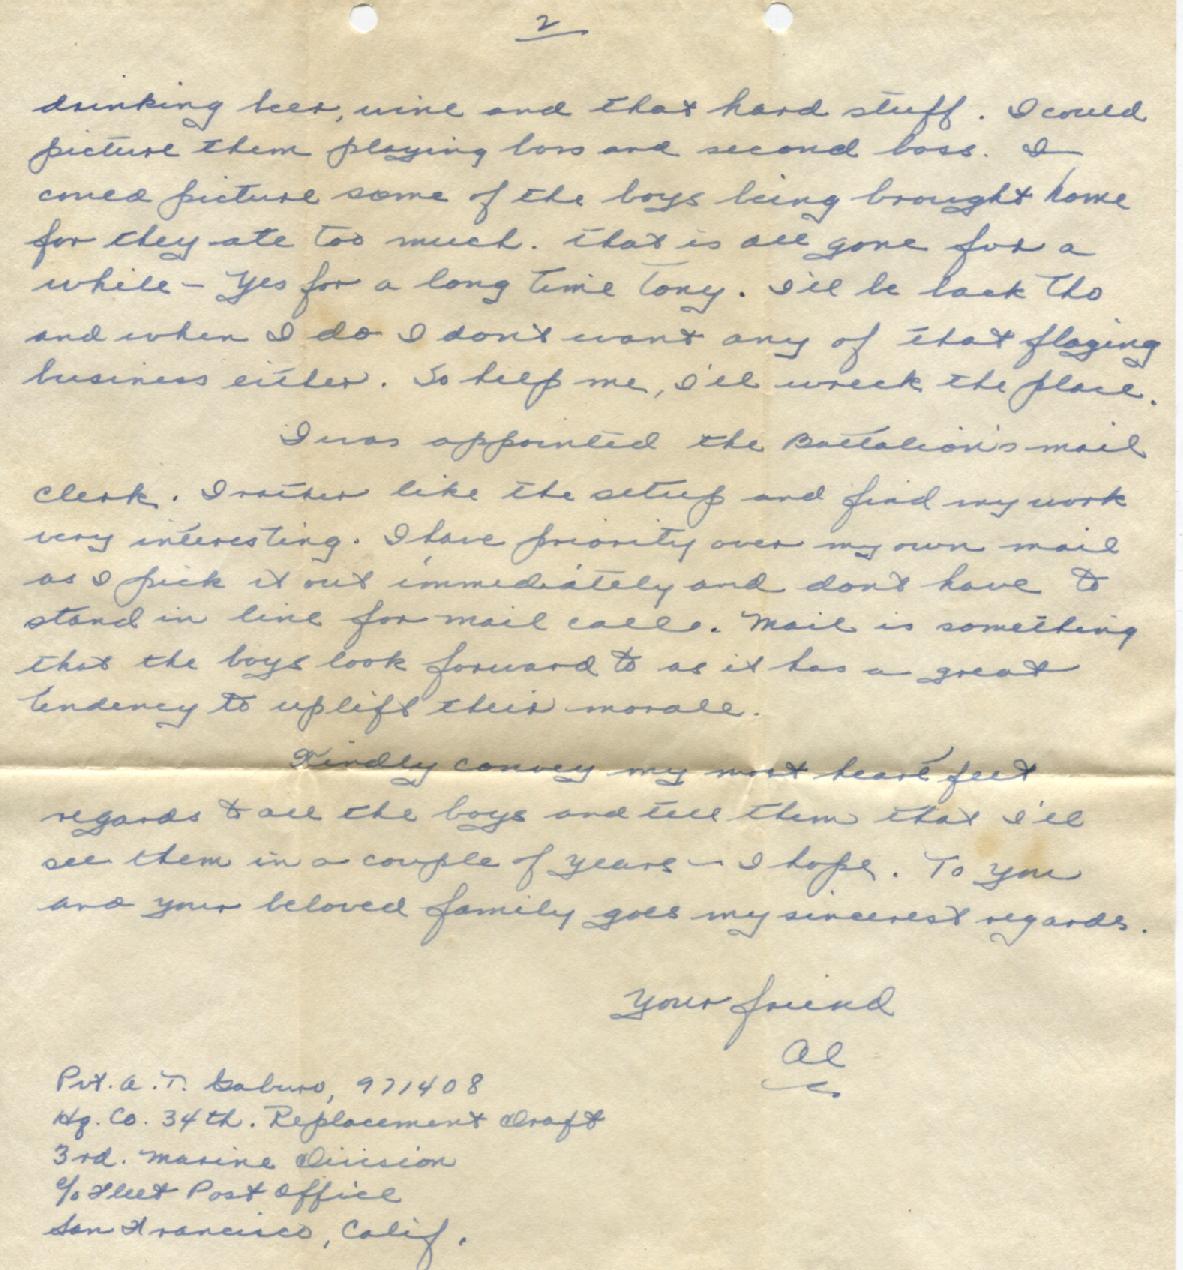 2
drinking beer, wine and that hard stuff. I could
picture them playing boss and second boss. I
could picture some of the boys being brought home
for they ate too much. that is all gone for a
while - Yes for a long time Tony. I'll be back tho
and when I do I don't want any of that
business either. So help me, I'll wreck the place.
I was appointed the Battalion's mail
clerk. I rather like the setup and find my work
very interesting. I have priority over my own mail
as I pick it out immediately and don't have to
stand in line for mail call. Mail is something
that the boys look forward to as it has a great
tendency to uplift their morale.
Kindly convey my most heart felt
regards to all the boys and tell them that I'll
see them in a couple of years - I hope. To you
and your beloved family goes my sincerest regards.
Your friend
Al
Pvt. A. T. Gaburo, 971408
Hq. Co. 34th. Replacement Draft
3rd. Marine Division
c/o Fleet Post Office
San Francisco, Calif.